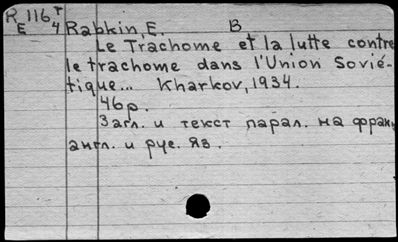 R 116 T
E 4
Rabkin, E. B
Le Trachome et la lutte contre
le trachome dans l'Union Sovié-
tique... Kharkov, 1934.
46p.
Загл. и текст парал. на франц
англ. и рус. яз.